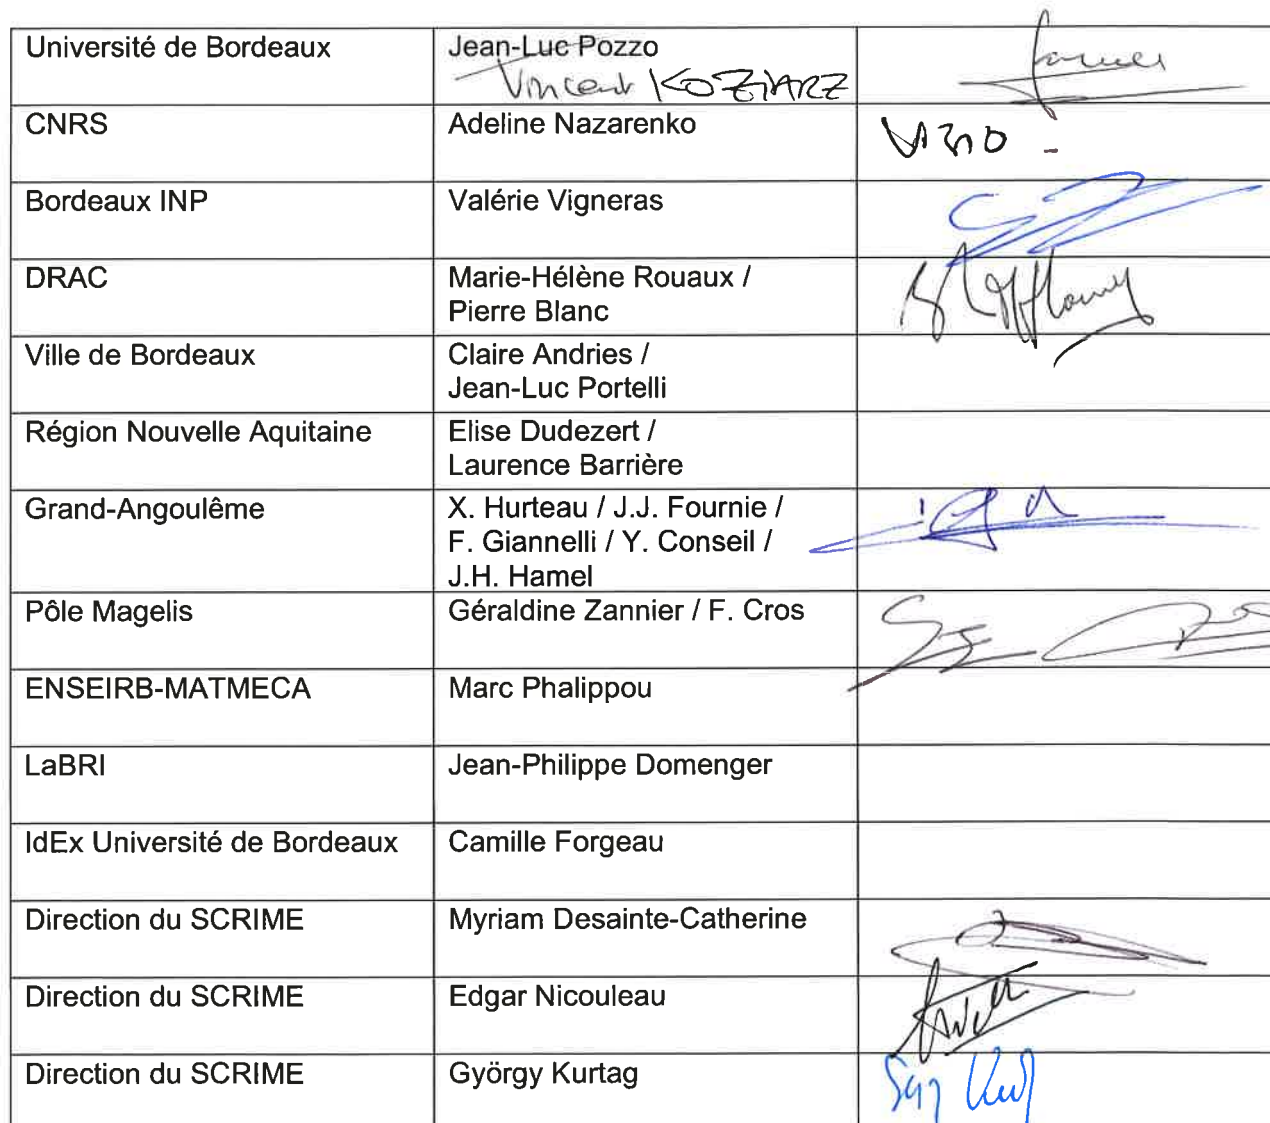 Université de Bordeaux Jean-Luc Pozzo
Vincent KOZIARZ
CNRS Adeline Nazarenko VISIO
Bordeaux INP Valérie Vigneras
DRAC Marie-Hélène Rouaux /
Pierre Blanc
Ville de Bordeaux Claire Andries /
Jean-Luc Portelli
Région Nouvelle Aquitaine Elise Dudezert /
Laurence Barrière
Grand-Angoulême X. Hurteau / J.J. Fournie /
F. Giannelli / Y. Conseil /
J.H. Hamel
Pôle Magelis Géraldine Zannier / F. Cros
ENSEIRB-MATMECA Marc Phalippou
LaBRI Jean-Philippe Domenger
IdEx Université de Bordeaux Camille Forgeau
Direction du SCRIME Myriam Desainte-Catherine
Direction du SCRIME Edgar Nicouleau
Direction du SCRIME György Kurtag